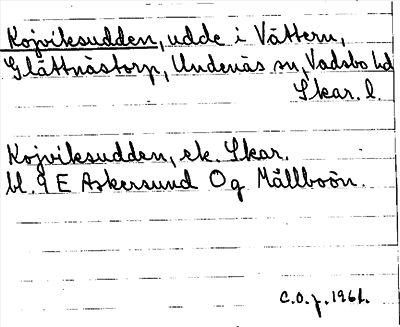 Kojviksudden, udde i Vättern,
Glättnästorp, Undenäs sn, Vadsbo hd
Skar. l.
Kojviksudden, ek. Skar.
bl. 9 E Askersund O g Mållboön.
C.O.j. 1961.